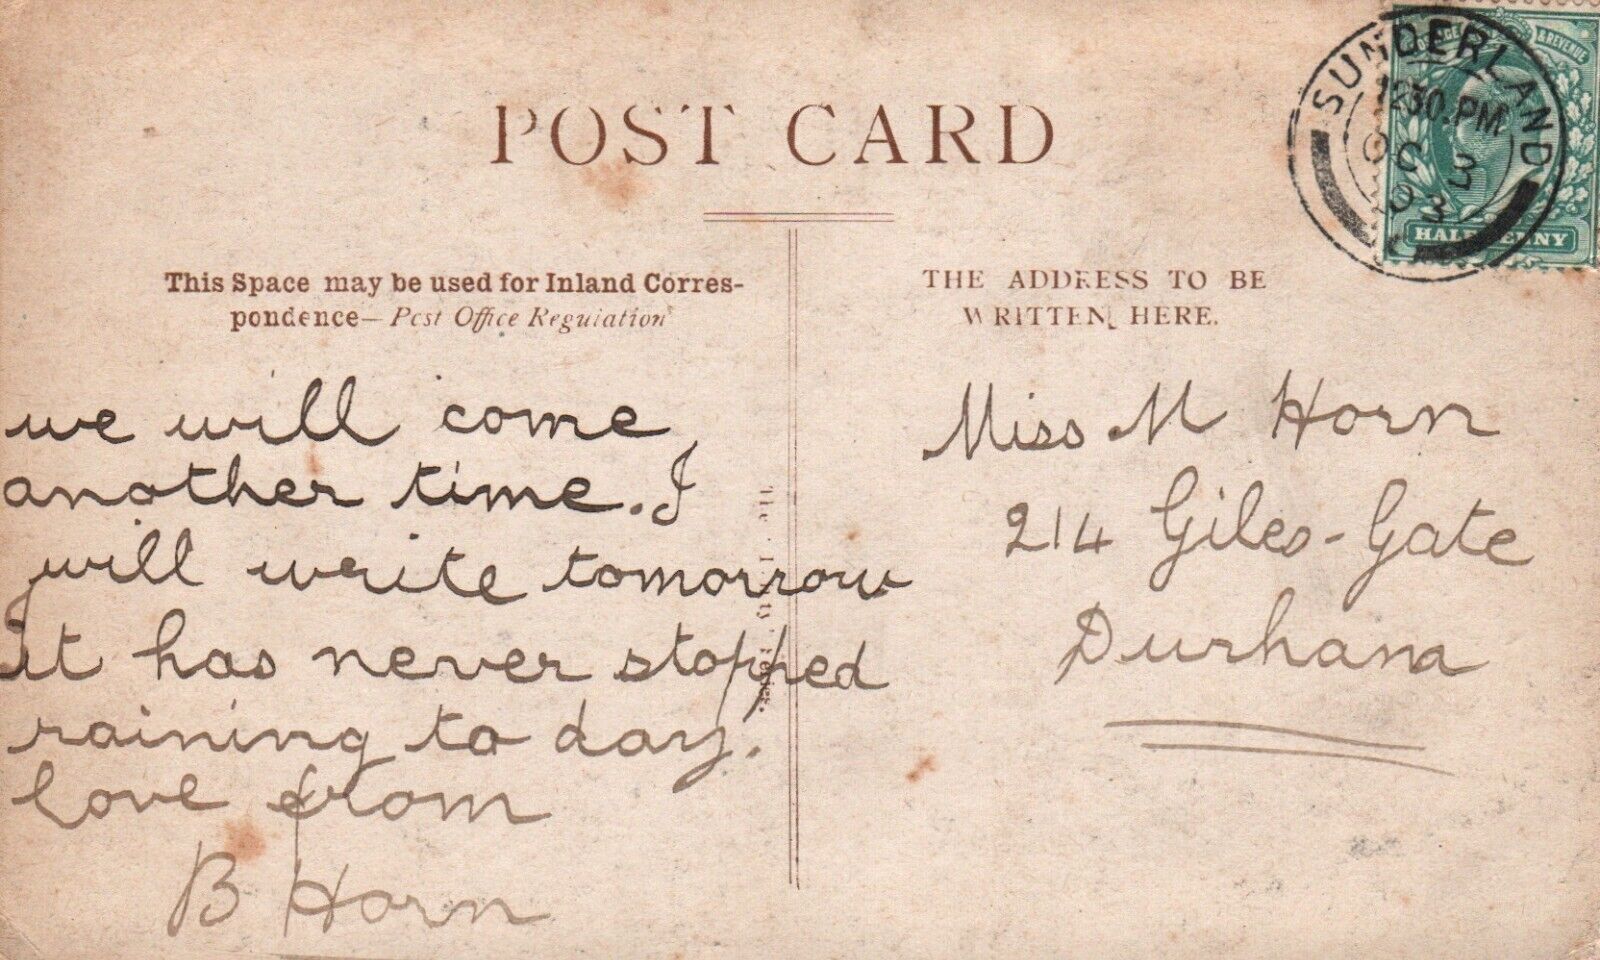 POST CARD
This Space may be used for Inland Corres-
pondence—Post Office Regulation
we will come
another time. I
will write tomorrow
it has never stopped
raining to day.
love from
B Horn
THE ADDRESS TO BE
WRITTEN HERE.
Miss M Horn
214 Giles-Gate
Durham
SUNDERLAND
12.30.PM
OC 3
03
POSTAGE & REVENUE
HALFPENNY
The
Series.